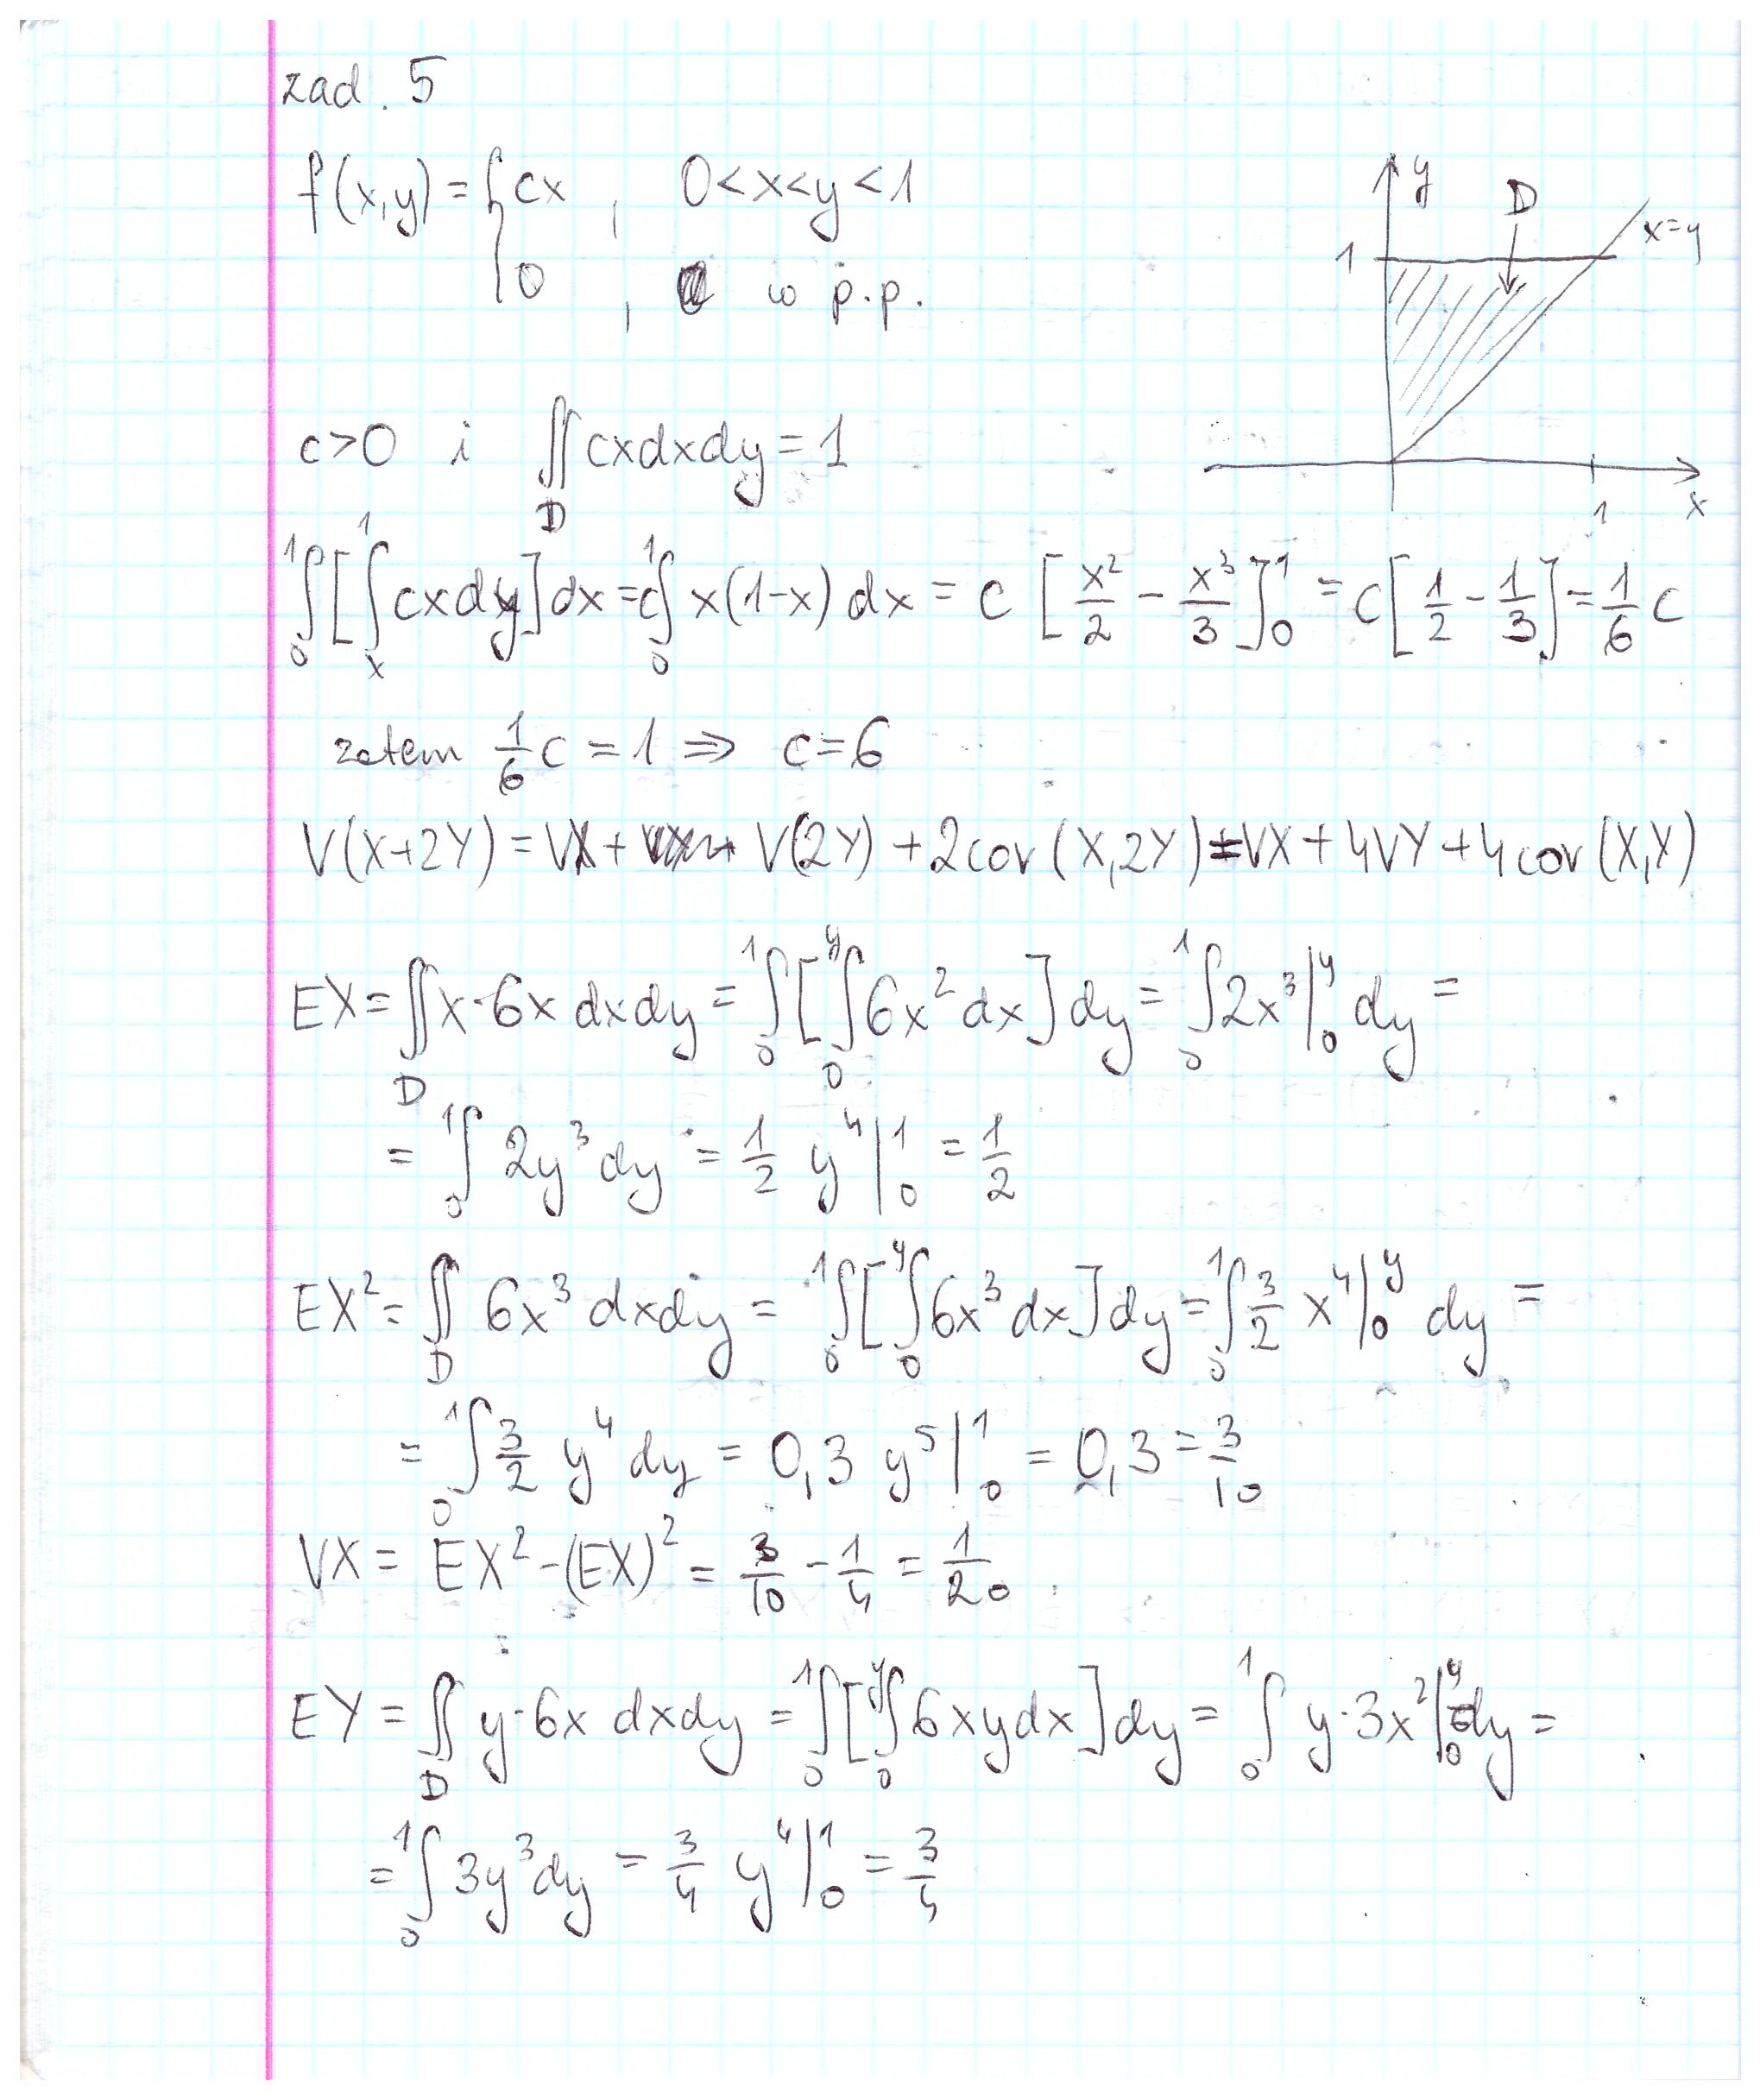 zad. 5
f(x,y) = { cx , 0<x<y<1
0 , w p.p.
y
D
x=y
1
1
x
c>0 i ∬_D cxdxdy = 1
∫_0^1 [∫_x^1 cxdy] dx = c∫_0^1 x(1-x) dx = c [x²/2 - x³/3]_0^1 = c[1/2 - 1/3] = 1/6 c
zatem 1/6 c = 1 ⇒ c=6
V(X+2Y) = VX + V(2Y) + 2cov(X,2Y) = VX + 4VY + 4cov(X,Y)
EX = ∬_D x·6x dxdy = ∫_0^1 [∫_0^y 6x² dx] dy = ∫_0^1 2x³|_0^y dy =
= ∫_0^1 2y³ dy = 1/2 y⁴|_0^1 = 1/2
EX² = ∬_D 6x³ dxdy = ∫_0^1 [∫_0^y 6x³ dx] dy = ∫_0^1 3/2 x⁴|_0^y dy =
= ∫_0^1 3/2 y⁴ dy = 0,3 y⁵|_0^1 = 0,3 = 3/10
VX = EX² - (EX)² = 3/10 - 1/4 = 1/20
EY = ∬_D y·6x dxdy = ∫_0^1 [∫_0^y 6xydx] dy = ∫_0^1 y·3x²|_0^y dy =
= ∫_0^1 3y³ dy = 3/4 y⁴|_0^1 = 3/4